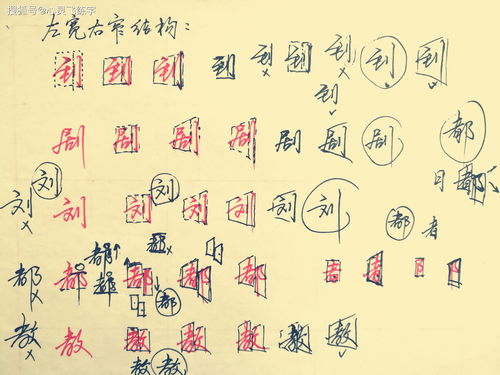 搜狐号@心灵飞练字
左宽右窄结构:
到 到 到 到 到 到 到 到 到
到
剧 剧 剧 剧 剧 剧 剧 都
刘 刘 日 都
刘 刘 刘 刘 刘 刘 刘 都 者
都 都
都 都 都 都 都 者 者 日
日 都
教 教 教 教 教 教 教
教 教